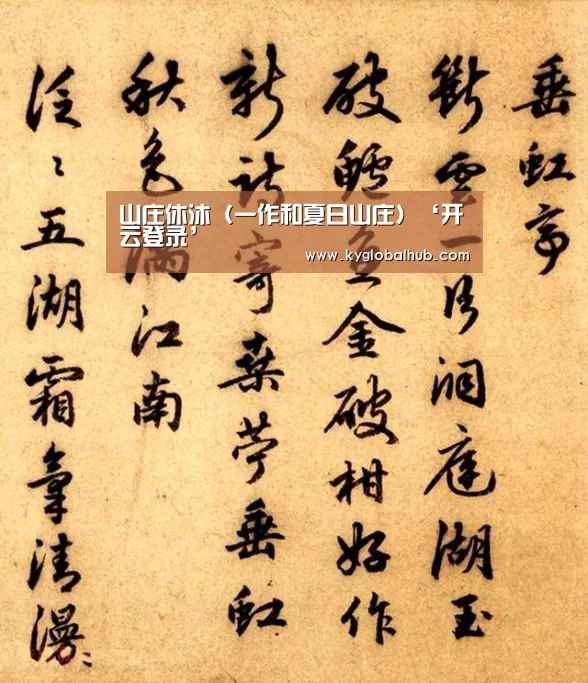 垂虹亭
斷雲一片洞庭湖玉
破鱸魚金破柑好作
新詩寄桑苧垂虹
秋色滿江南
泛〻五湖霜氣清漫〻
山庄休沐（一作和夏日山庄）‘开
云登录’
www.kyglobalhub.com